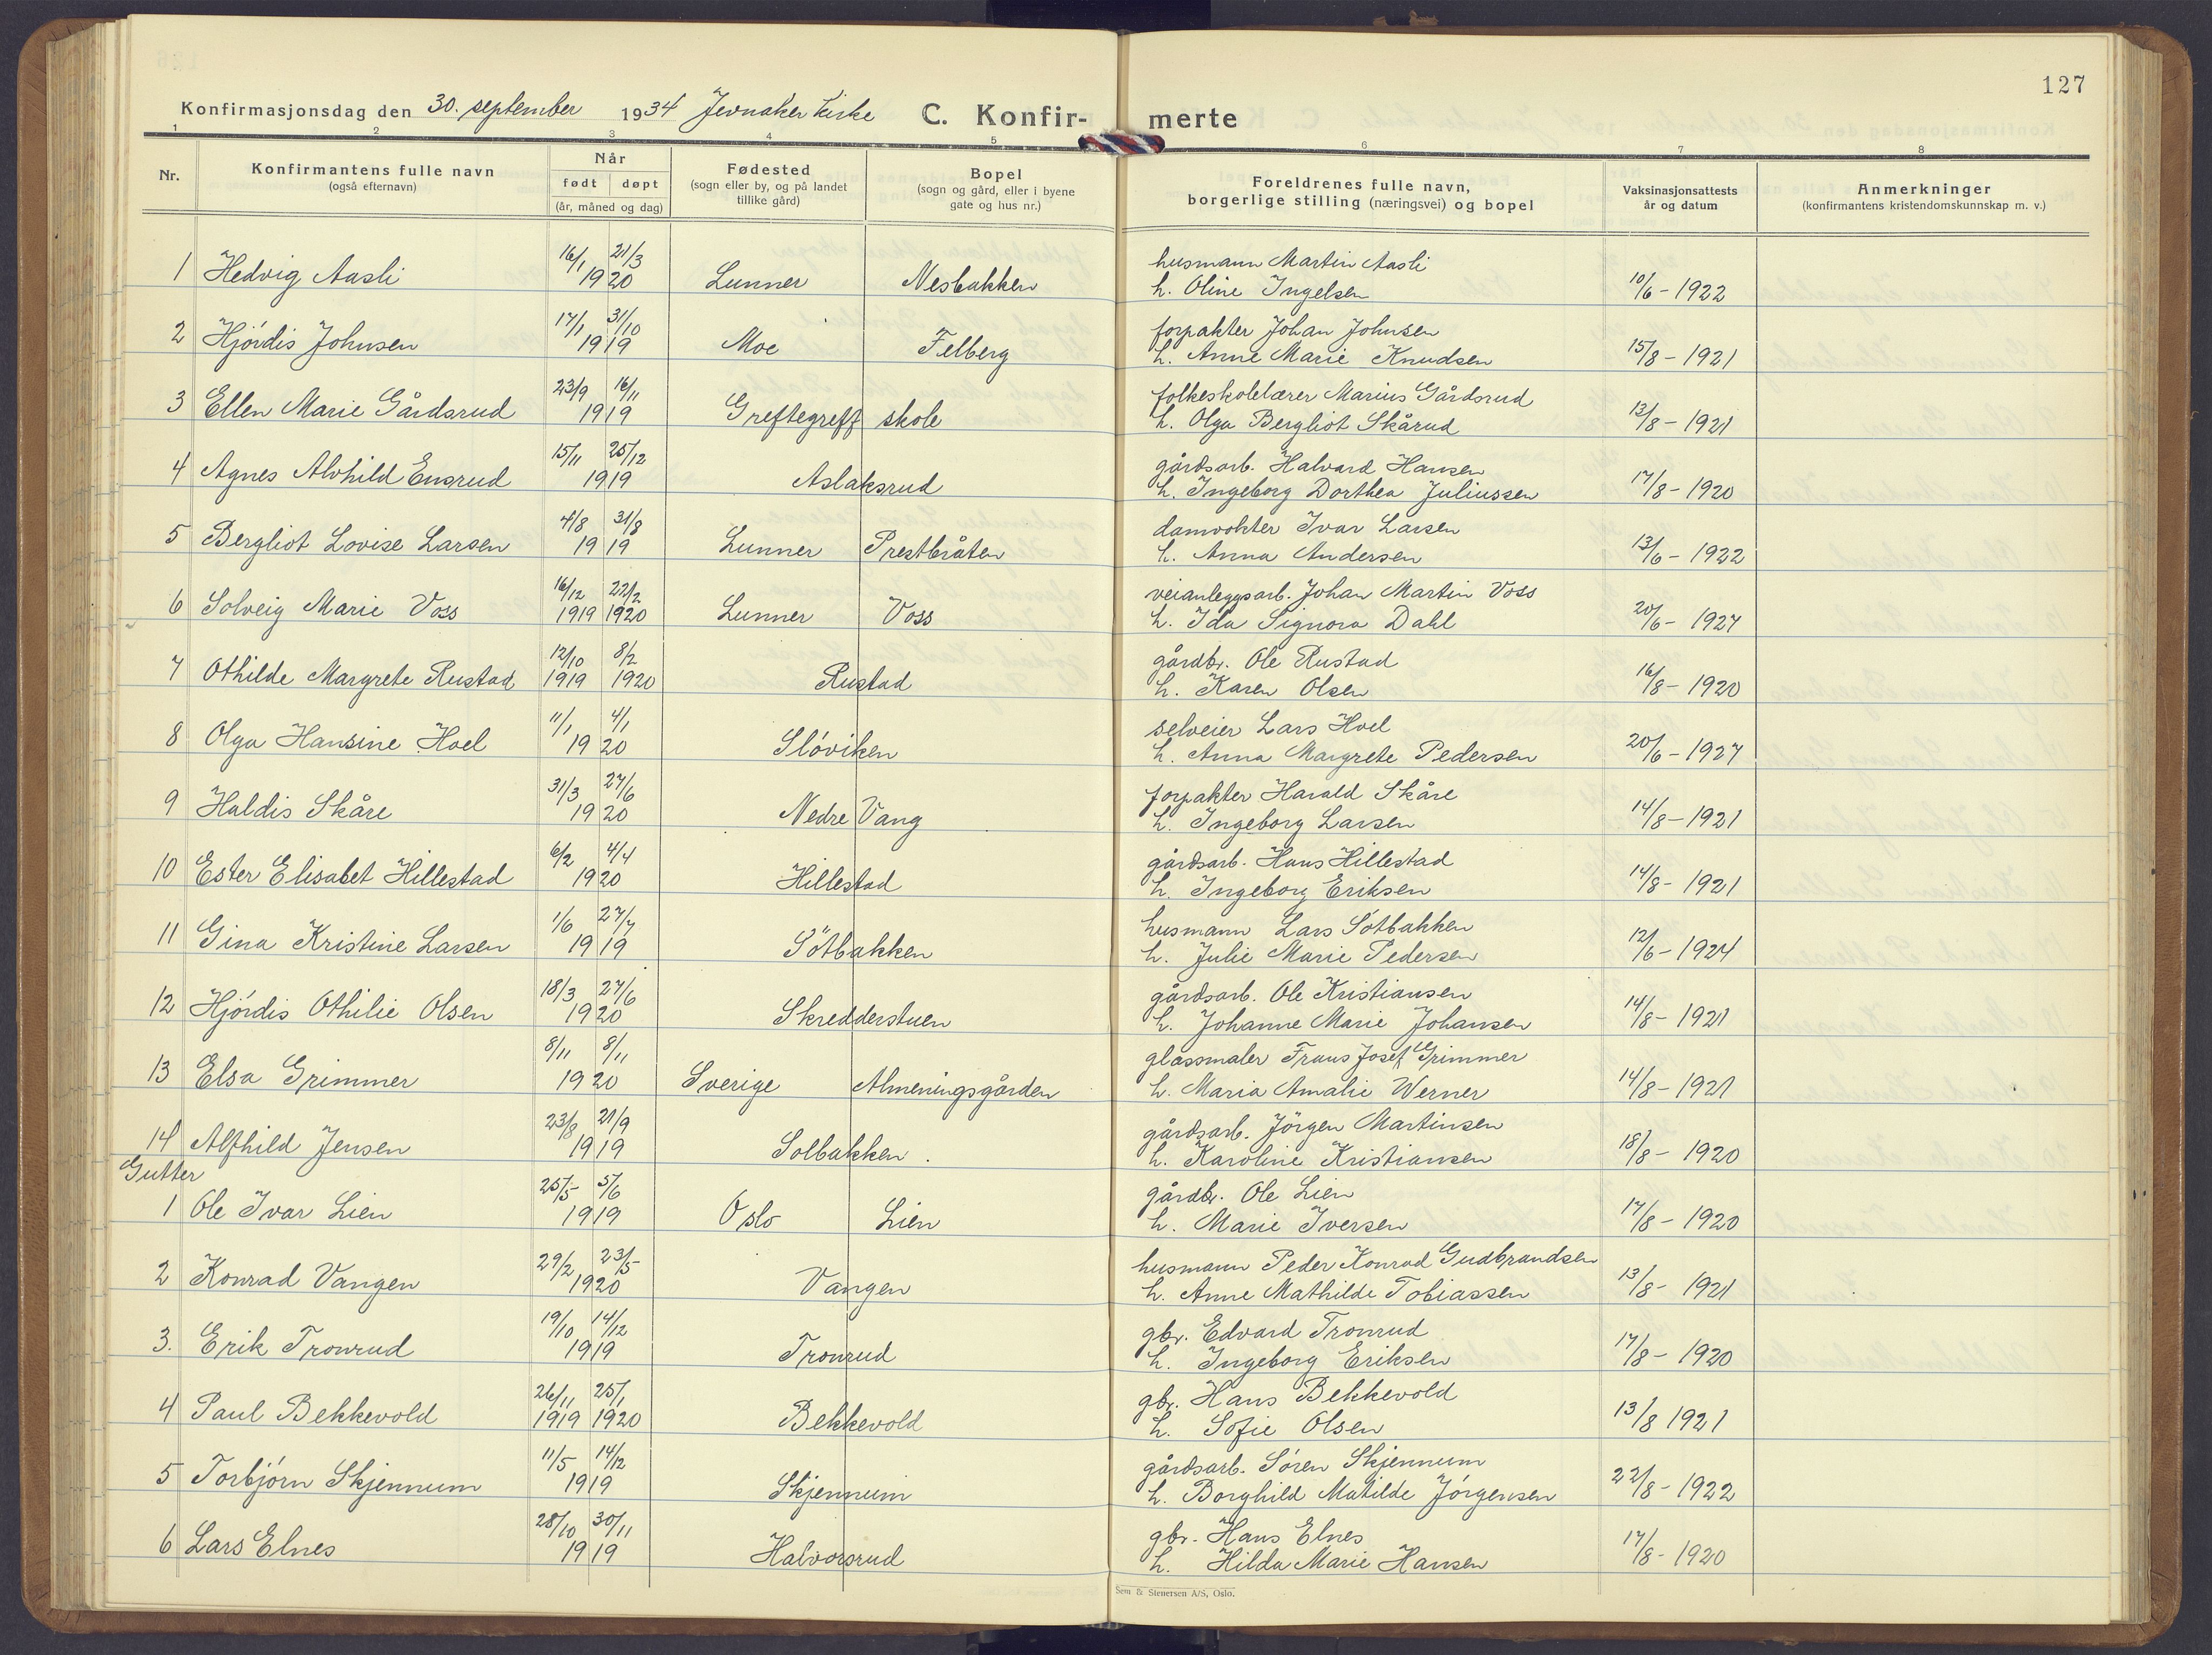 127
Konfirmasjonsdag den 30. september 1934 Jevnaker kirke C. Konfirmerte
1 2 3 4 5 6 7 8
Nr. Konfirmantens fulle navn (også efternavn) Når født døpt (år, måned og dag) Fødested (sogn eller by, og på landet tillike gård) Bopel (sogn og gård, eller i byene gate og hus nr.) Foreldrenes fulle navn, borgerlige stilling (næringsvei) og bopel Vaksinasjonsattests år og datum Anmerkninger (konfirmantens kristendomskunnskap m. v.)
1 Hedvig Aasli 16/1 21/3 1920 Lunner Nesbakken husmann Martin Aasli
h. Oline Ingelsen 10/6 - 1922
2 Hjördis Johnsen 17/1 31/10 1919 Moe Felberg forpakter Johan Johnsen
h. Anne Marie Knudsen 15/8 - 1921
3 Ellen Marie Gårdsrud 23/9 16/11 1919 Greftegreff skole folkeskolelærer Marius Gårdsrud
h. Olga Bergliot Skårud 13/8 - 1921
4 Agnes Alvhild Ensrud 15/11 25/12 1919 Aslaksrud gårdsarb. Halvard Hansen
h. Ingeborg Dorthea Juliussen 17/8 - 1920
5 Bergliot Lovise Larsen 4/8 31/8 1919 Lunner Prestbråten damvokter Ivar Larsen
h. Anna Andersen 13/6 - 1922
6 Solveig Marie Voss 16/12 1919 22/2 1920 Lunner Voss veianleggsarb. Johan Martin Voss
h. Ida Signora Dahl 20/6 - 1927
7 Othilde Margrete Rustad 12/10 1919 8/2 1920 Rustad gårdbr. Ole Rustad
h. Karen Olsen 16/8 - 1920
8 Olga Hansine Hoel 11/1 4/1 1920 Slöviken selveier Lars Hoel
h. Anna Margrete Pedersen 20/6 - 1927
9 Haldis Skåre 31/3 27/6 1920 Nedre Vang forpakter Harald Skåre
h. Ingeborg Larsen 14/8 - 1921
10 Ester Elisabet Hillestad 6/2 4/4 1920 Hillestad gårdsarb. Hans Hillestad
h. Ingeborg Eriksen 14/8 - 1921
11 Gina Kristine Larsen 1/6 27/7 1919 Sötbakken husmann Lars Sötbakken
h. Julie Marie Pedersen 12/6 - 1924
12 Hjördis Othilie Olsen 18/3 27/6 1920 Skredderstuen gårdsarb. Ole Kristiansen
h. Johanne Marie Johansen 14/8 - 1921
13 Elsa Grimmer 8/11 8/11 1920 Sverige Almeningsgården glassmaler Frans Josef Grimmer
h. Maria Amalie Werner 14/8 - 1921
14 Alfhild Jensen 23/8 21/9 1919 Solbakken. gårdsarb. Jörgen Martinsen
h. Karoline Kristiansen 18/8 - 1920
Gutter
1 Ole Ivar Lien 25/5 5/6 1919 Oslo Lien gårdbr. Ole Lien
h. Marie Iversen 17/8 - 1920
2 Konrad Vangen 29/2 23/5 1920 Vangen husmann Peder Konrad Gudbrandsen
h. Anne Mathilde Tobiassen 13/8 - 1921
3. Erik Tronrud 19/10 14/12 1919 Tronrud gbr. Edvard Tronrud
h. Ingeborg Eriksen 17/8 - 1920
4 Paul Bekkevold 26/11 1919 25/1 1920 Bekkevold gbr. Hans Bekkevold
h. Sofie Olsen 13/8 1921
5 Torbjörn Skjennum 11/5 14/12 1919 Skjennum gårdsarb. Sören Skjennum
h. Borghild Matilde Jörgensen 22/8 - 1922
6 Lars Elnes 28/10 30/11 1919 Halvorsrud gbr. Hans Elnes
h. Hilda Marie Hansen 17/8 - 1920
Sem & Stenersen A/S, Oslo.